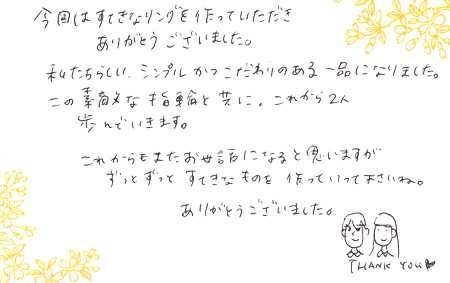 今回はすてきなリングを作っていただき
ありがとうございました。
私たちらしい、シンプルかつこだわりのある一品になりました。
この素敵な指輪と共に、これから2人
歩んでいきます。
これからもまたお世話になると思いますが
ずっとずっと すてきなものを 作っていって下さいね。
ありがとうございました。
THANK YOU♥